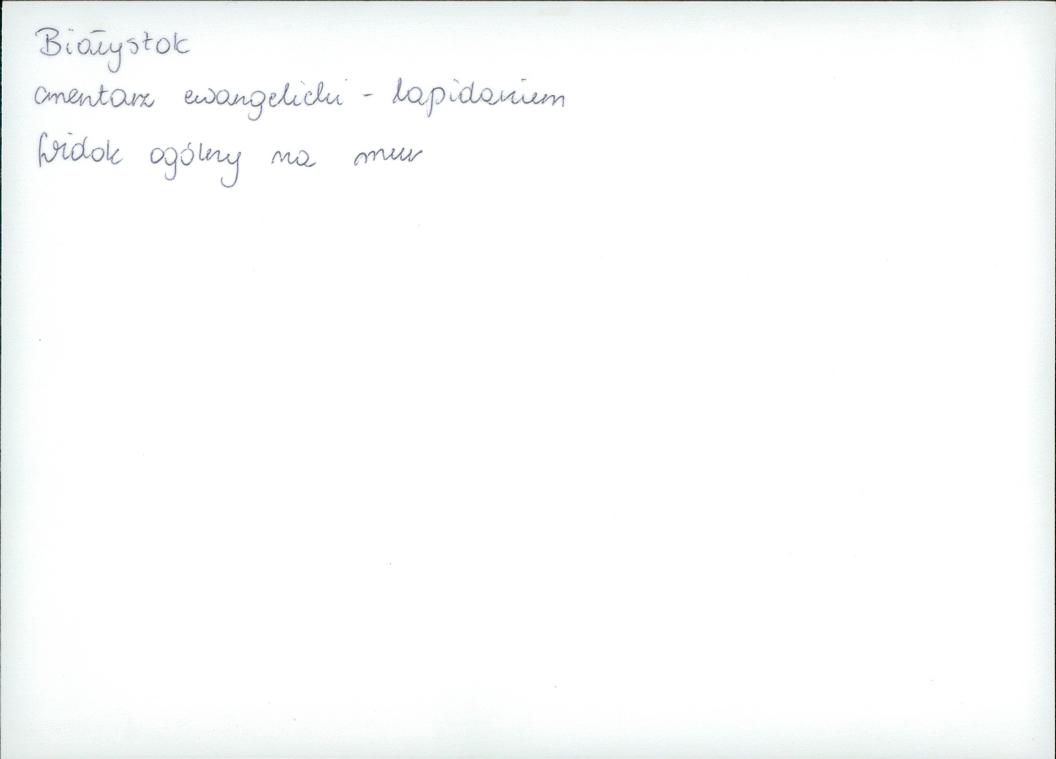 Białystok
cmentarz ewangelicki - lapidarium
Widok ogólny na mur